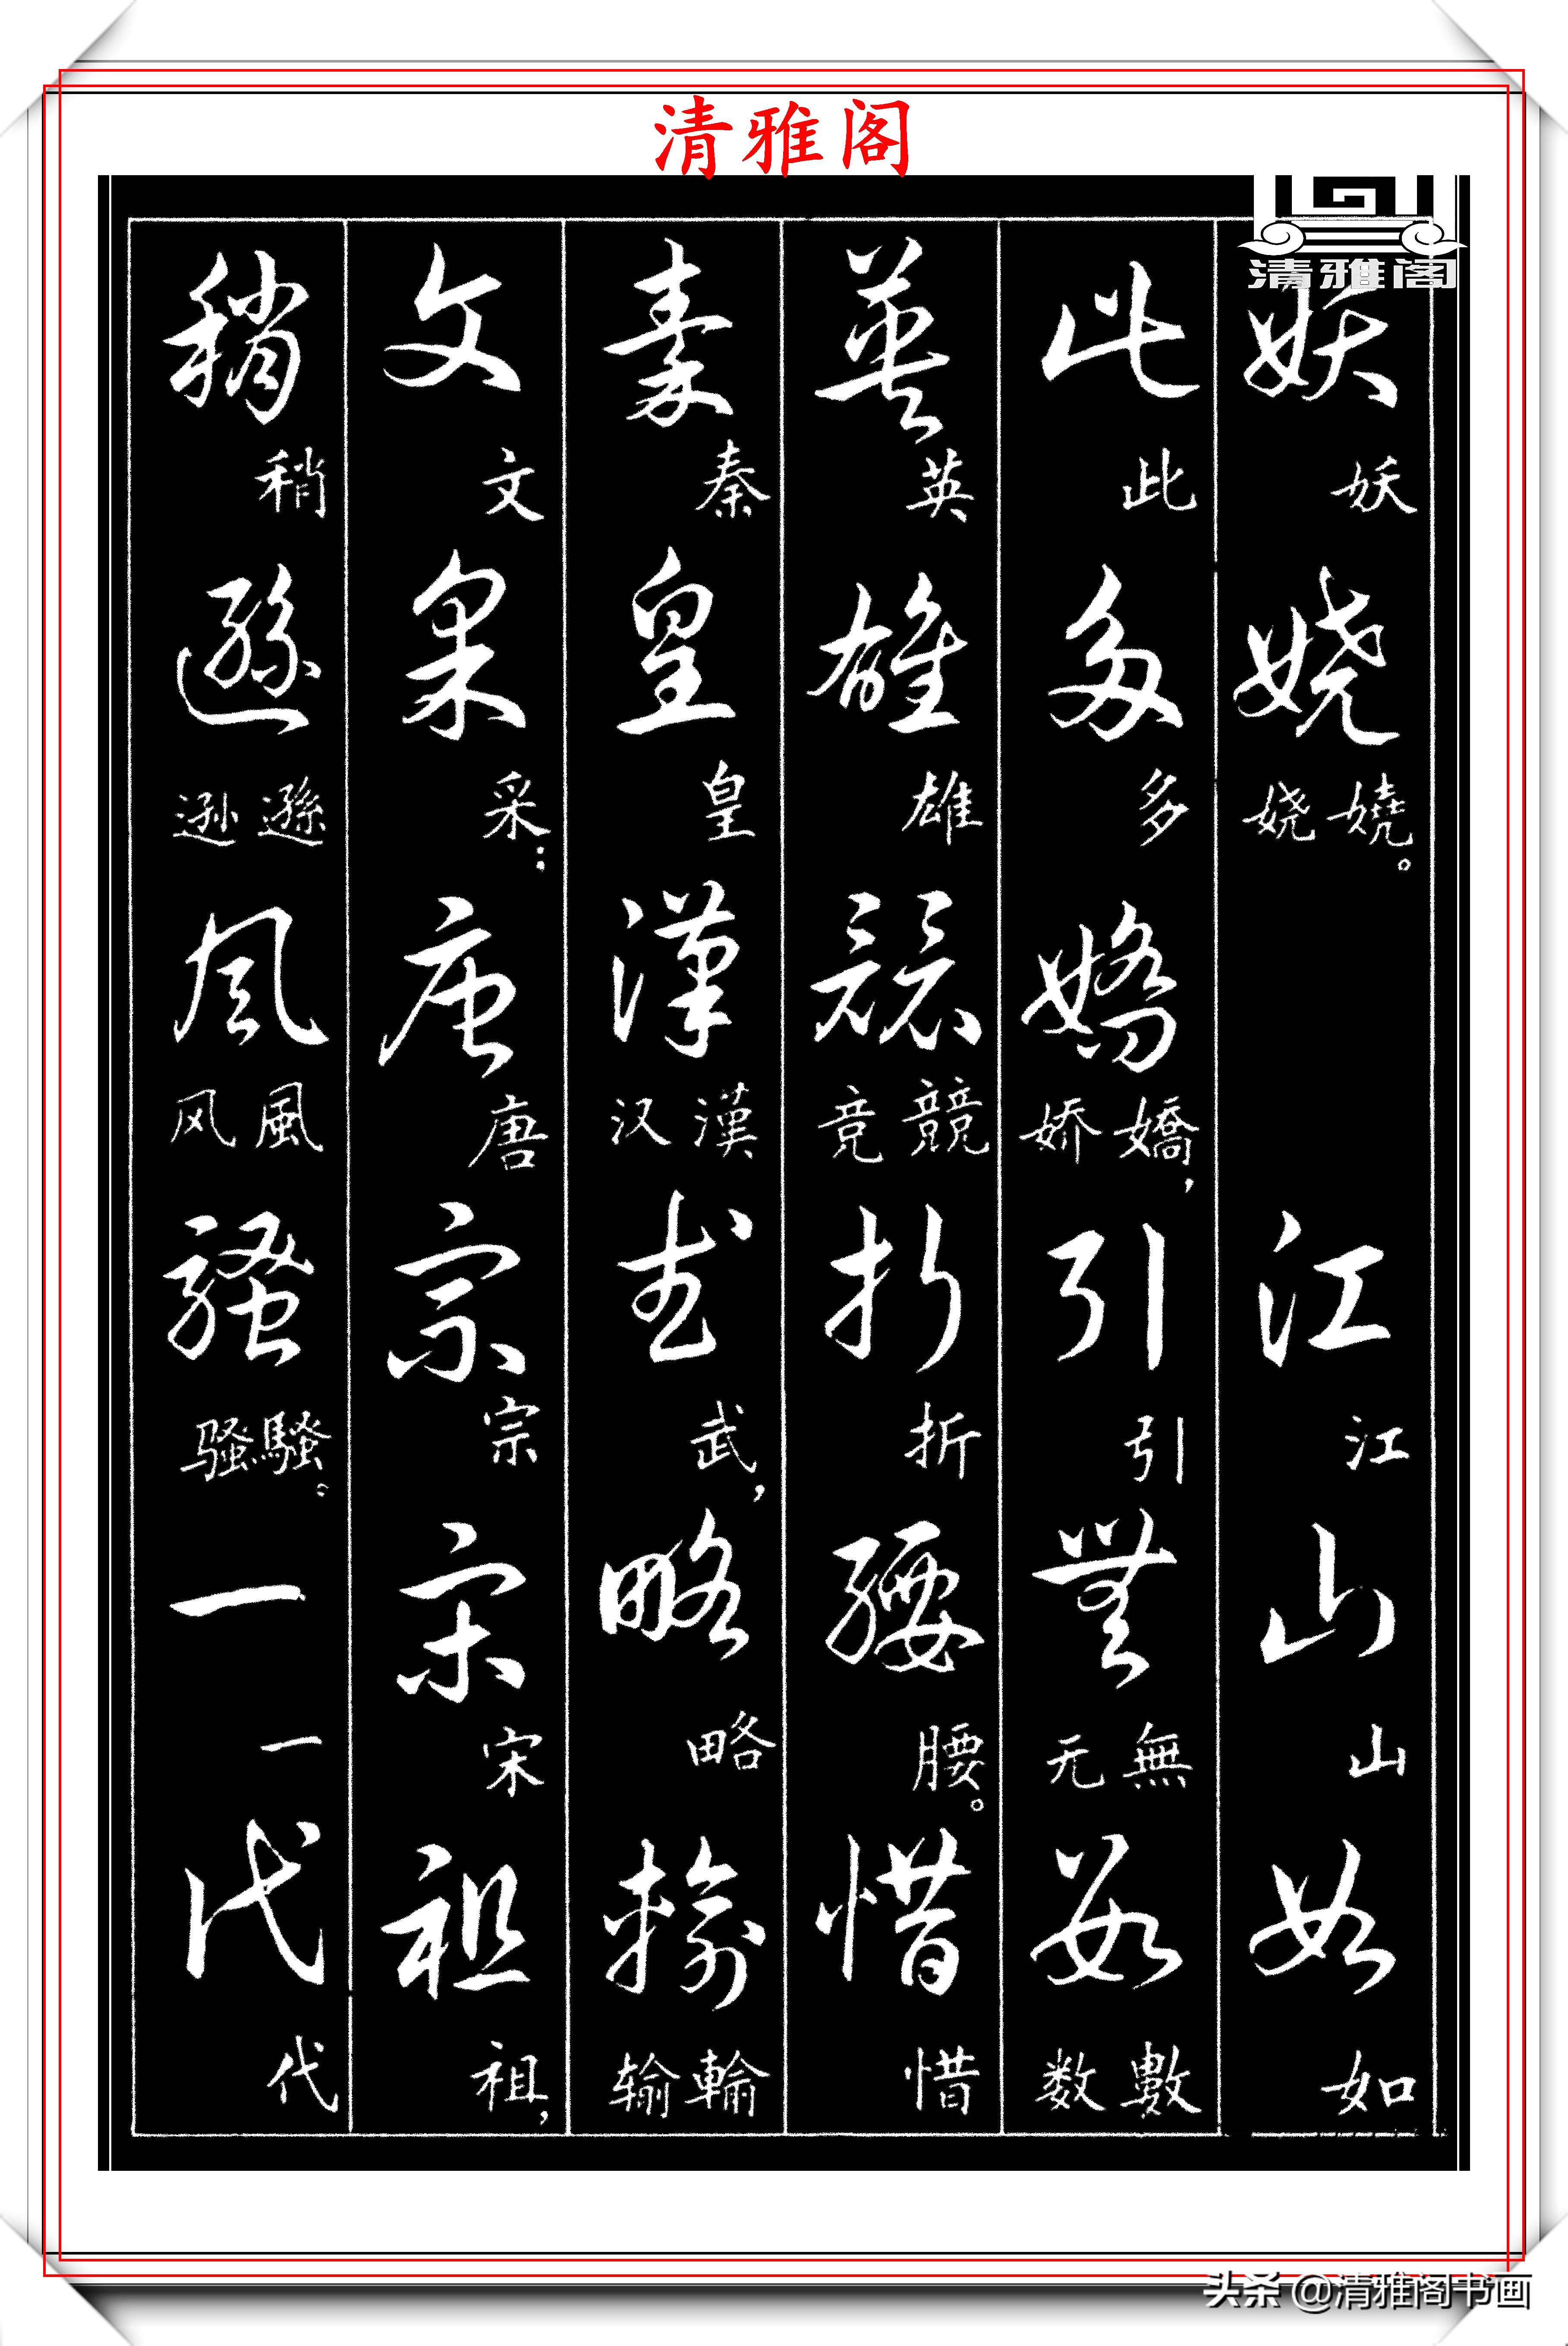 清雅阁
清雅阁
妖 妖 嬈 嬈。 娆 江 江 山 山 如 如
此 此 多 多 嬌 嬌， 娇 引 引 無 無 无 數 數 数
英 英 雄 雄 競 競 竞 折 折 腰 腰。 惜 惜
秦 秦 皇 皇 漢 漢 汉 武 武， 略 略 輸 輸 输
文 文 采 采： 唐 唐 宗 宗 宋 宋 祖 祖，
稍 稍 遜 遜 逊 風 風 风 騷 騷。 骚 一 一 代 代
头条 @清雅阁书画